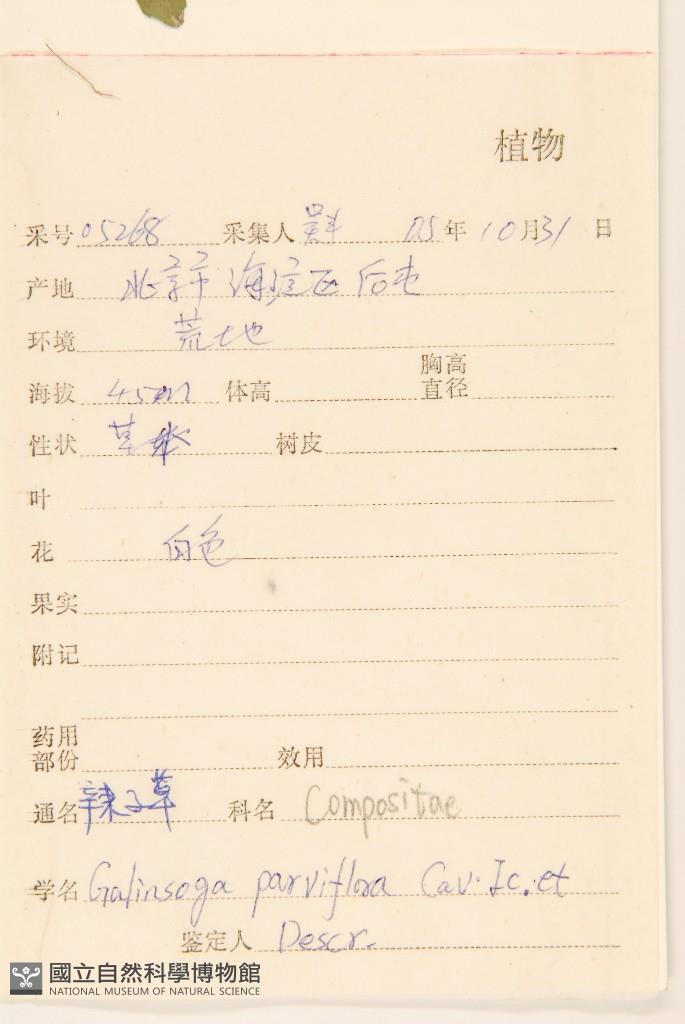 植物
采号 05268 采集人 05年10月31日
产地 北京市海淀区后屯
环境 荒地
海拔 45m 体高 胸高直径
性状 草本 树皮
叶
花 白色
果实
附记
药用部份 效用
通名 辣子草 科名 Compositae
学名 Galinsoga parviflora Cav. Ic. et
鉴定人 Descr.
國立自然科學博物館
NATIONAL MUSEUM OF NATURAL SCIENCE